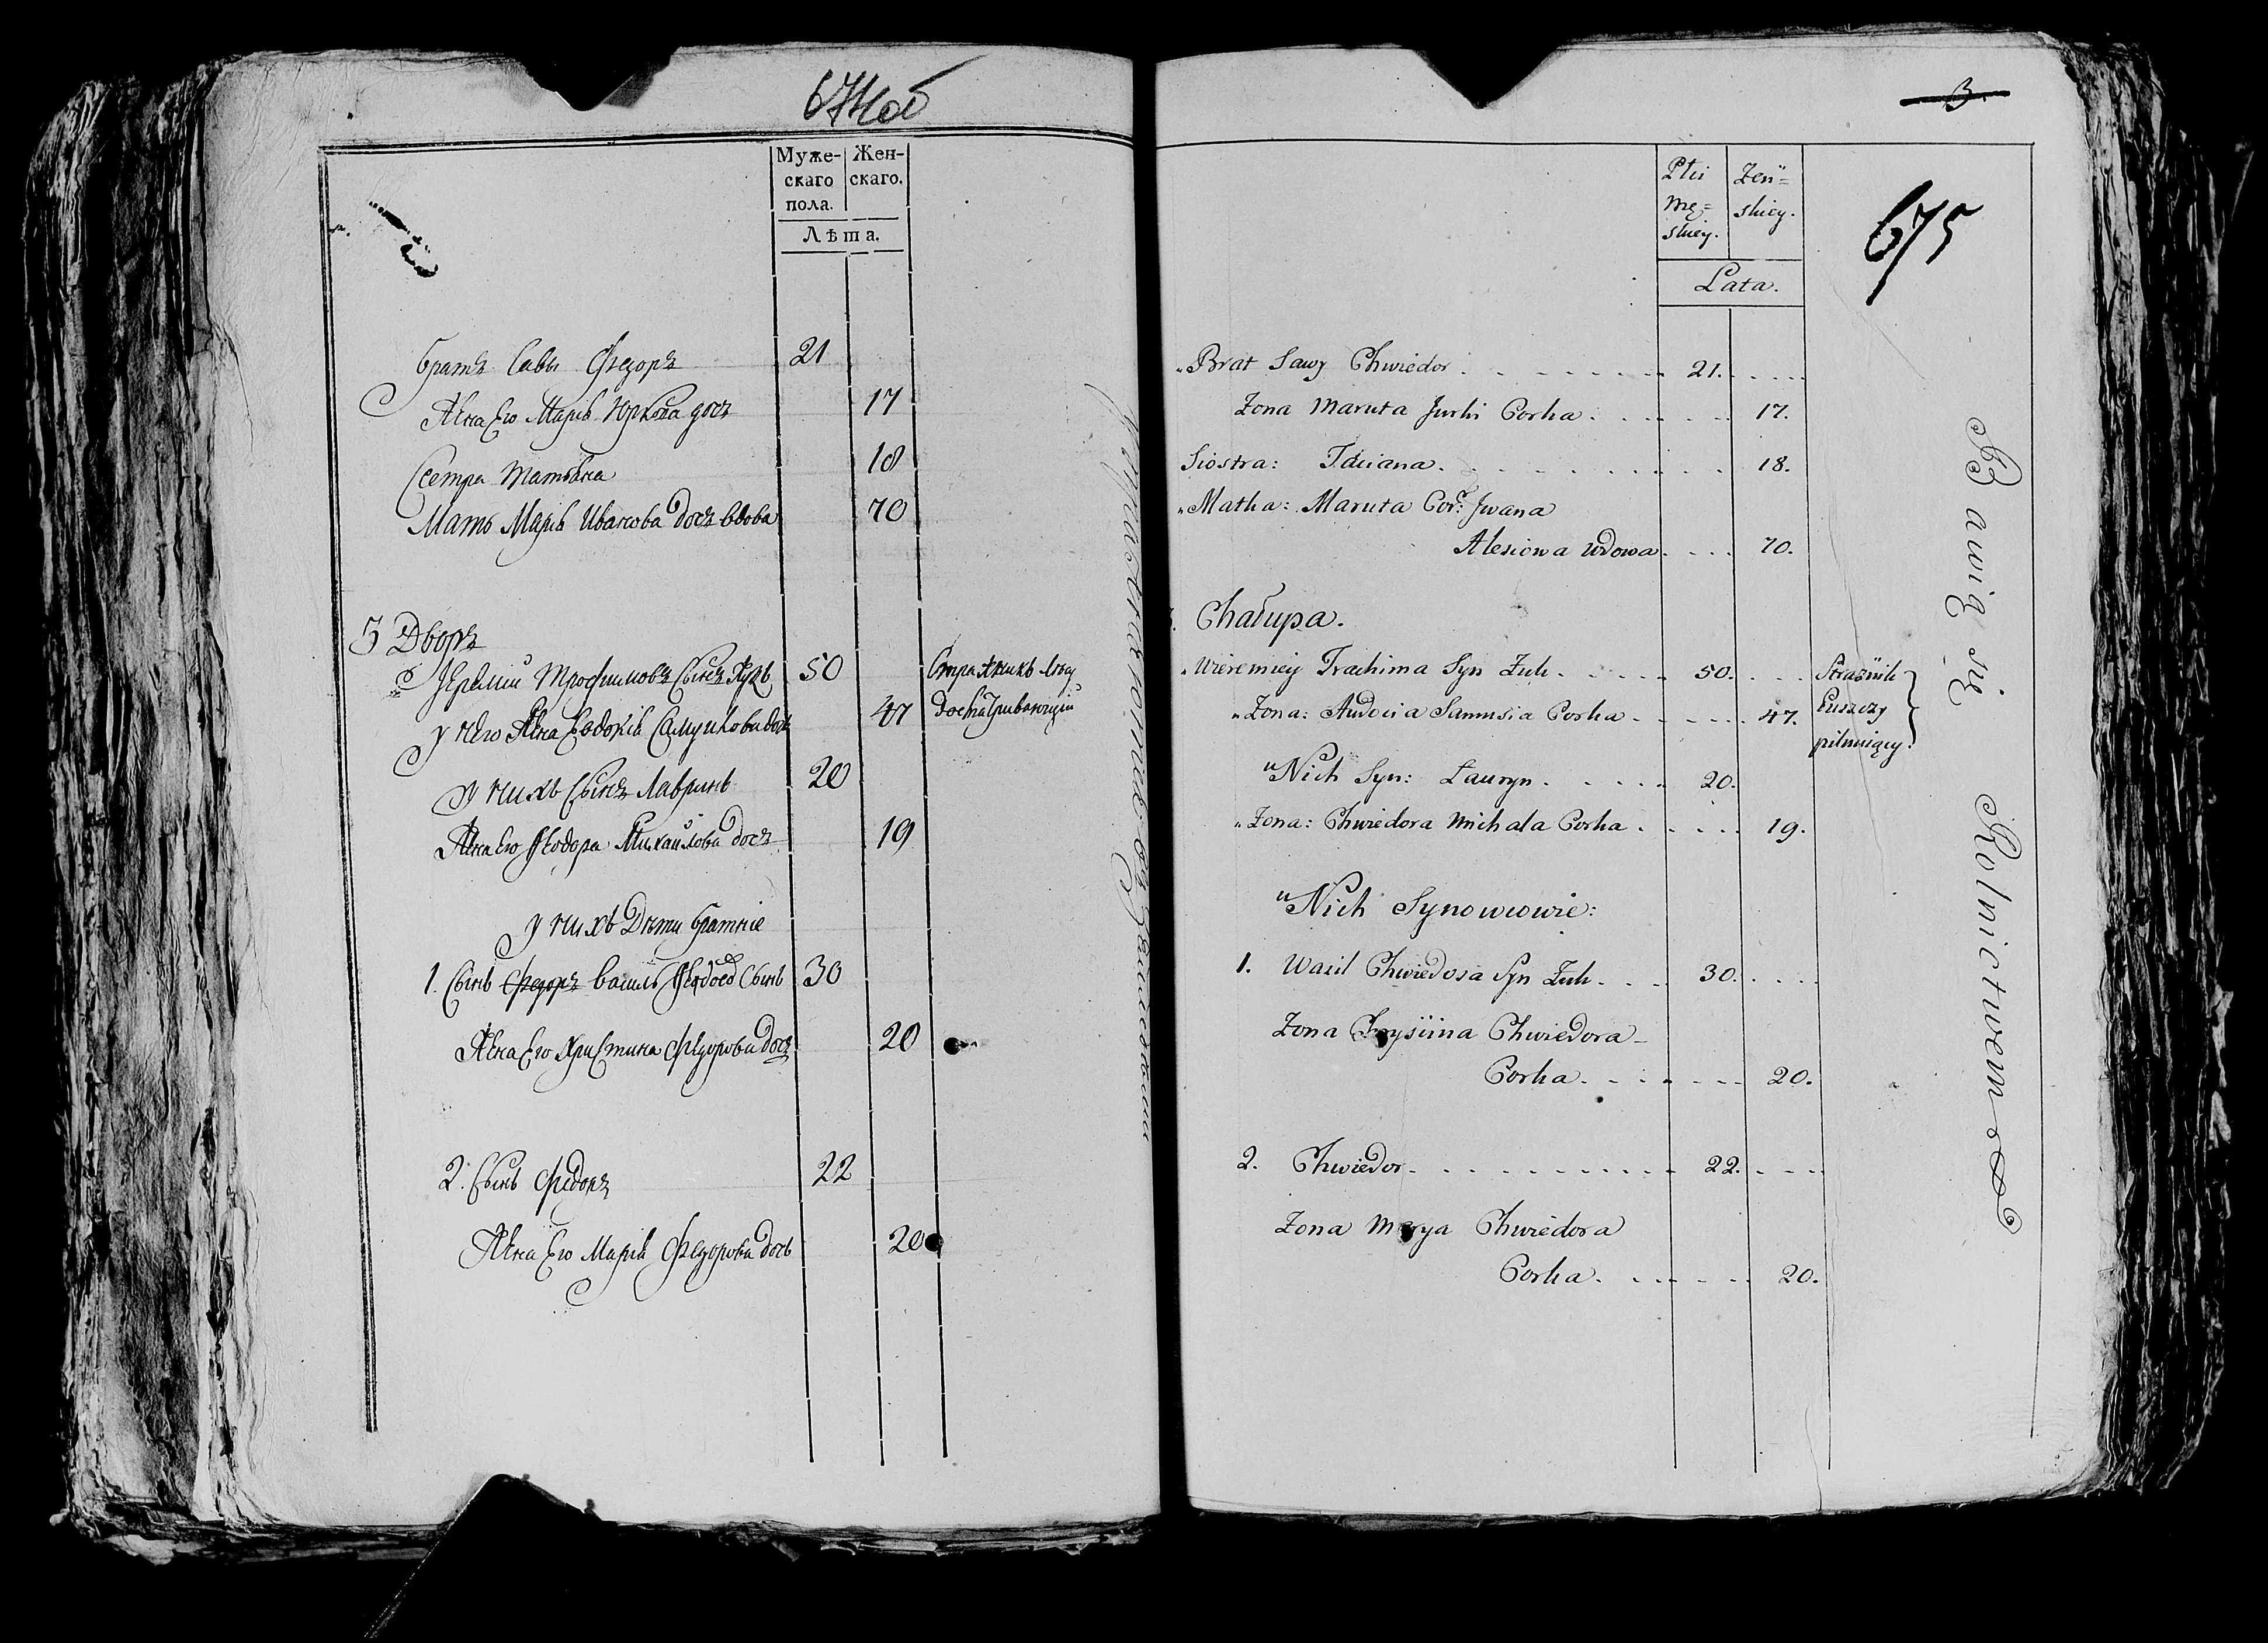 674об
Муже-
скаго
пола.
Жен-
скаго.
Лѣта.
братъ Савы Федоръ 21
Жена Его Марья Юркова дочъ 17
Сестра Татьяна 18
Мать Марья Иванова дочъ вдова 70
3 Дворъ
Іеремій Трофимовъ Сынъ Жукъ 50
у него Жена Евдокія Самуйлова дочь 47
у нихъ Сынъ Лавринъ 20
Жена Его Ѳеодора Михайлова дочъ 19
у нихъ Дѣти братніе
1. Сынъ Федоръ василь Сынъ 30
Жена Его Христина Федорова дочъ 20
2. Сынъ Федоръ 22
Жена Его Марья Федорова дочь 20
3.
675
Płci
Mę=
skiey.
Żeń=
skiey.
Lata.
Brat Sawy Chwiedor 21.
Zona Maruta Jurki Corka 17.
Siostra: Taciana 18.
Matka: Maruta Cor: Jwana
Alesiowa wdowa 70.
Chałupa.
Wieremiey Trachima Syn Żuk 50. Strażnik
Zona: Audocia Samusia Corka 47. Puszczy
pilnuiący.
u Nich Syn: Łauryn 20.
Zona: Chwiedora Michała Corka 19.
u Nich Synowcowie:
1. Wasil Chwiedosa Syn Żuk 30.
Zona Krysiina Chwiedora
Corka 20.
2. Chwiedor 22.
Zona Marya Chwiedora
Corka 20.
Bawią się Rolnictwem